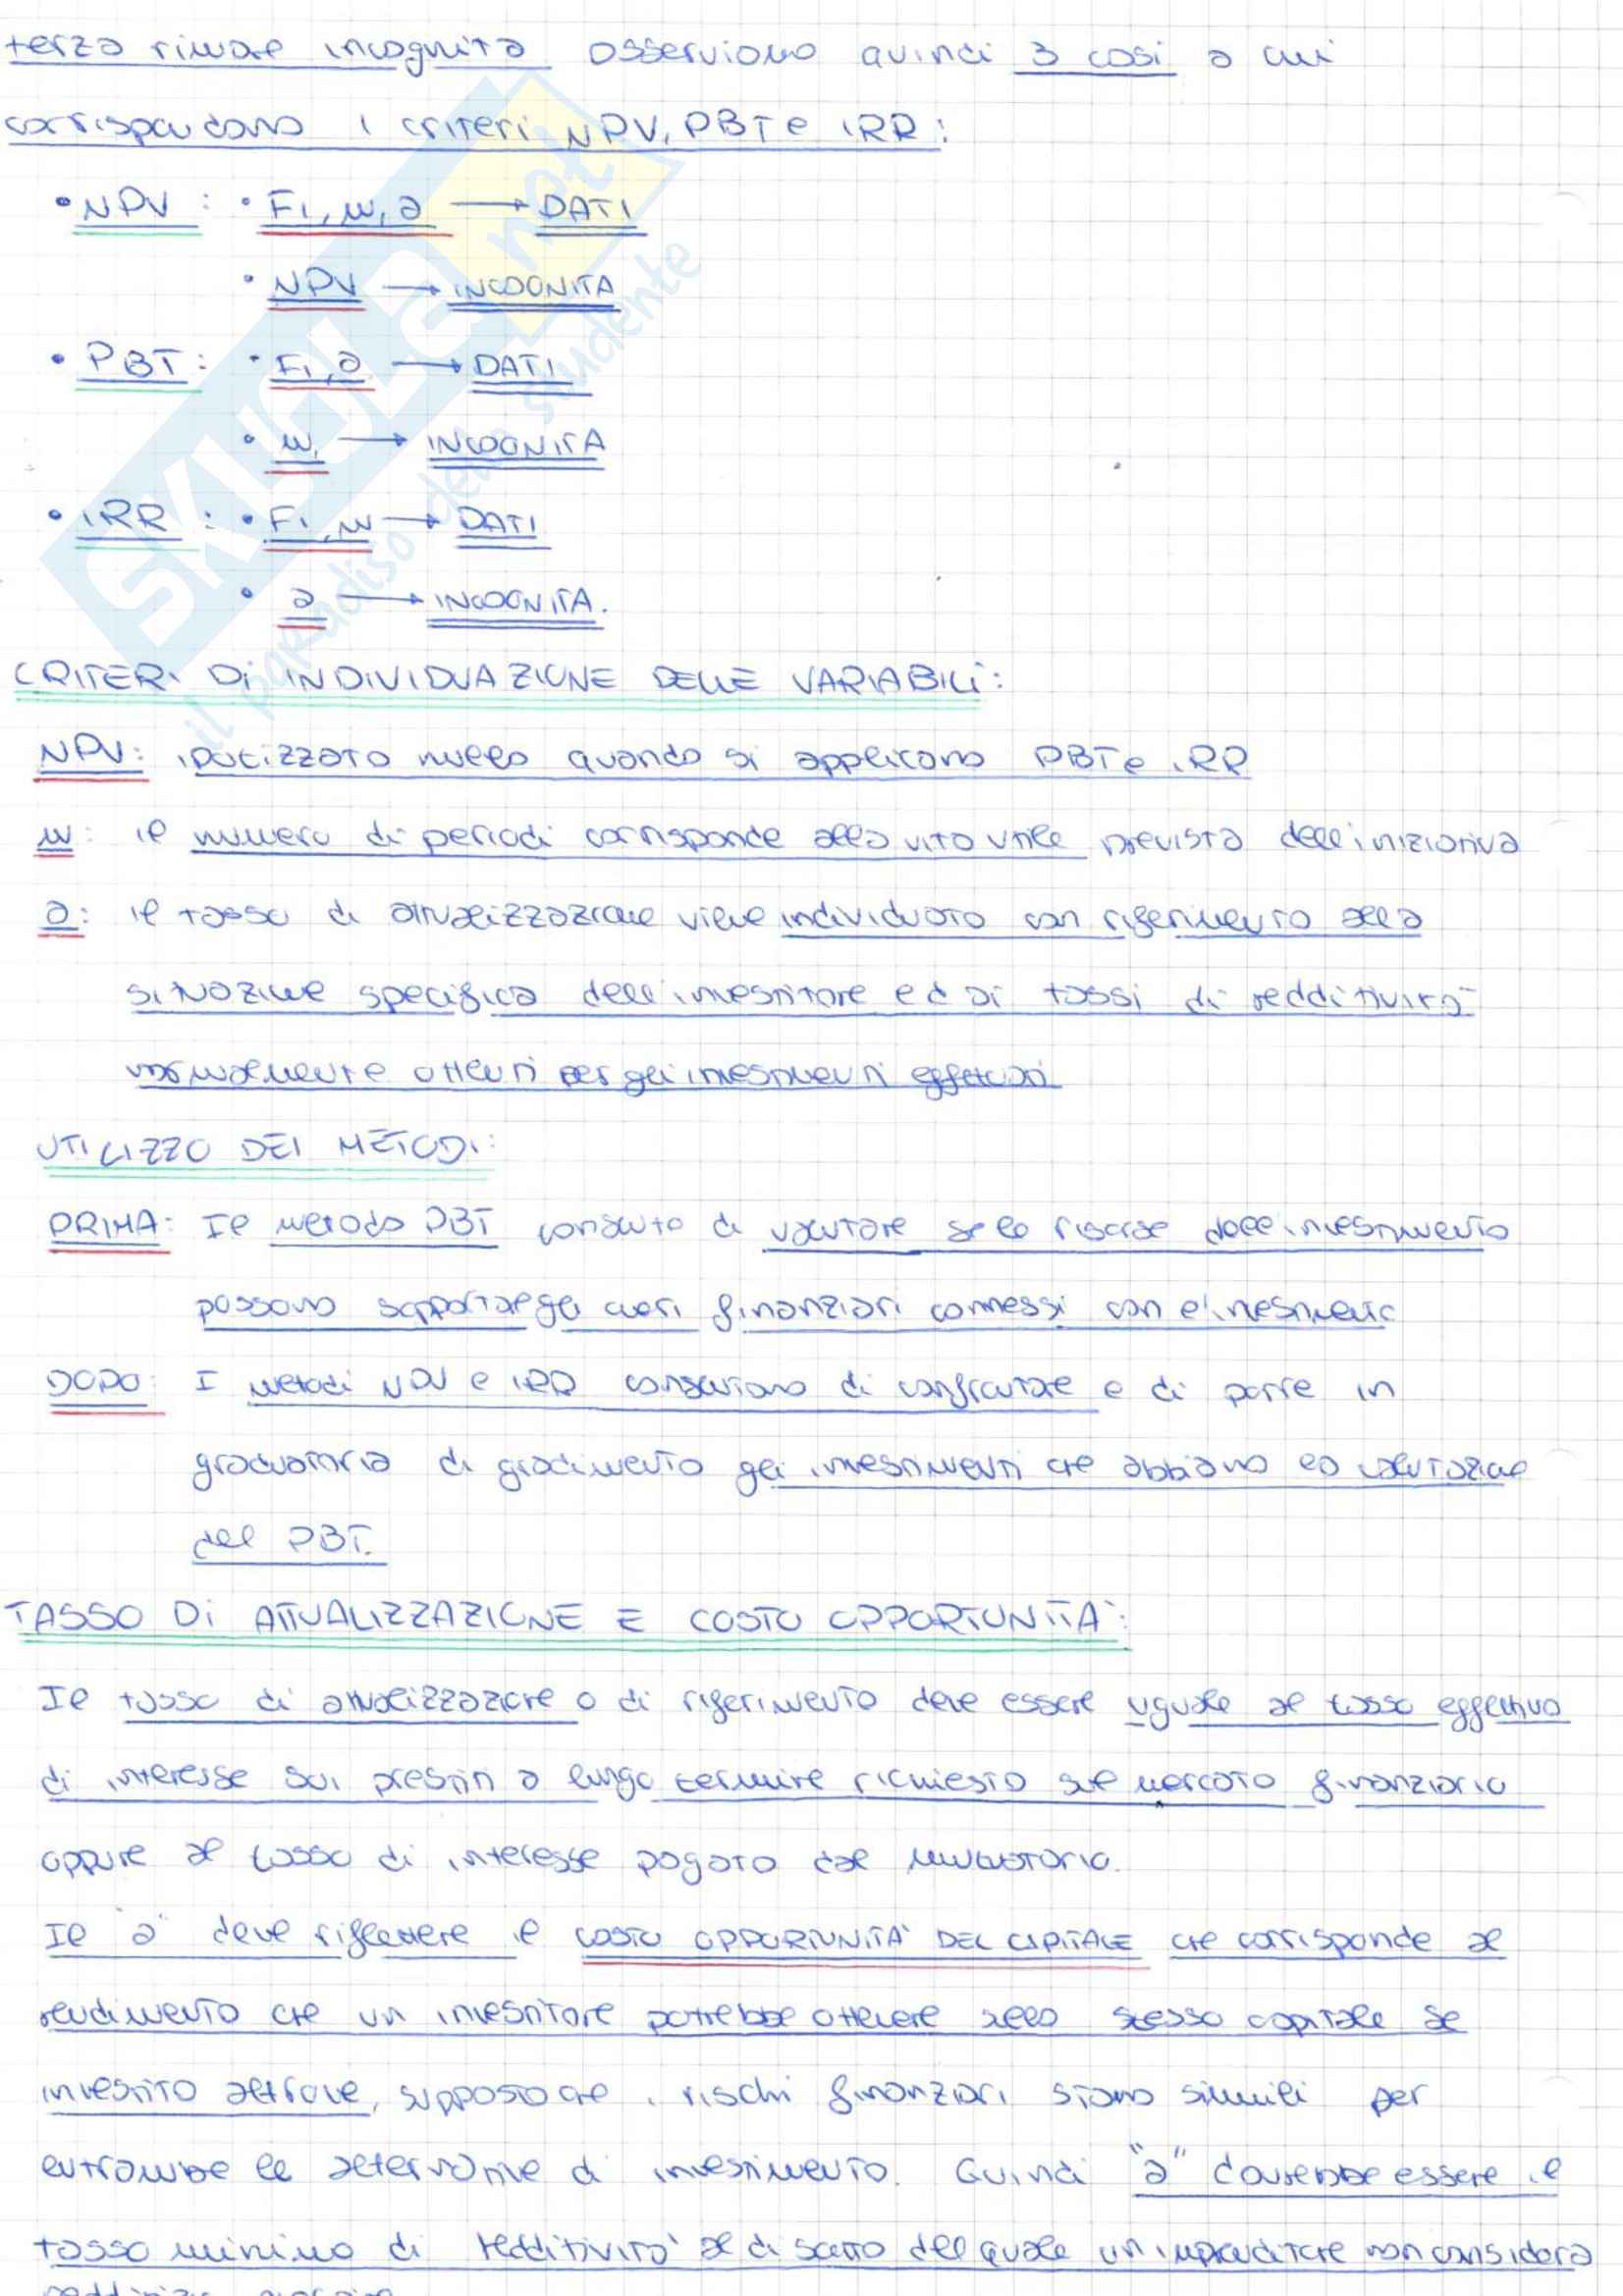 terza rimane incognita osserviamo quindi 3 casi a cui
corrispondono i criteri NPV, PBT e IRR:
• NPV : • Fi, n, a → DATI
• NPV → INCOGNITA
• PBT: • Fi, a → DATI
• n, → INCOGNITA
• IRR : • Fi, n → DATI
• a → INCOGNITA.
CRITERI DI INDIVIDUAZIONE DELLE VARIABILI:
NPV: ipotizzato nullo quando si applicano PBT e IRR
n: il numero di periodi corrisponde alla vita utile prevista dell'iniziativa
a: il tasso di attualizzazione viene individuato con riferimento alla
situazione specifica dell'investitore ed ai tassi di redditività
normalmente ottenuti per gli investimenti effettuati
UTILIZZO DEI METODI:
PRIMA: Il metodo PBT consente di valutare se le risorse dell'investimento
possono sopportare gli oneri finanziari connessi con l'investimento
DOPO: I metodi NPV e IRR consentono di confrontare e di porre in
graduatoria di gradimento gli investimenti che abbiano la valutazione
del PBT.
TASSO DI ATTUALIZZAZIONE E COSTO OPPORTUNITA':
Il tasso di attualizzazione o di riferimento deve essere uguale al tasso effettivo
di interesse sui prestiti a lungo termine richiesto sul mercato finanziario
oppure al tasso di interesse pagato dal mutuatario.
Il "a" deve riflettere il COSTO OPPORTUNITA' DEL CAPITALE che corrisponde al
rendimento che un investitore potrebbe ottenere sullo stesso capitale se
investito altrove, supposto che i rischi finanziari siano simili per
entrambe le alternative di investimento. Quindi "a" dovrebbe essere il
tasso minimo di redditivita' al di sotto del quale un imprenditore non considera
SKUOLA.net
il paradiso dello studente